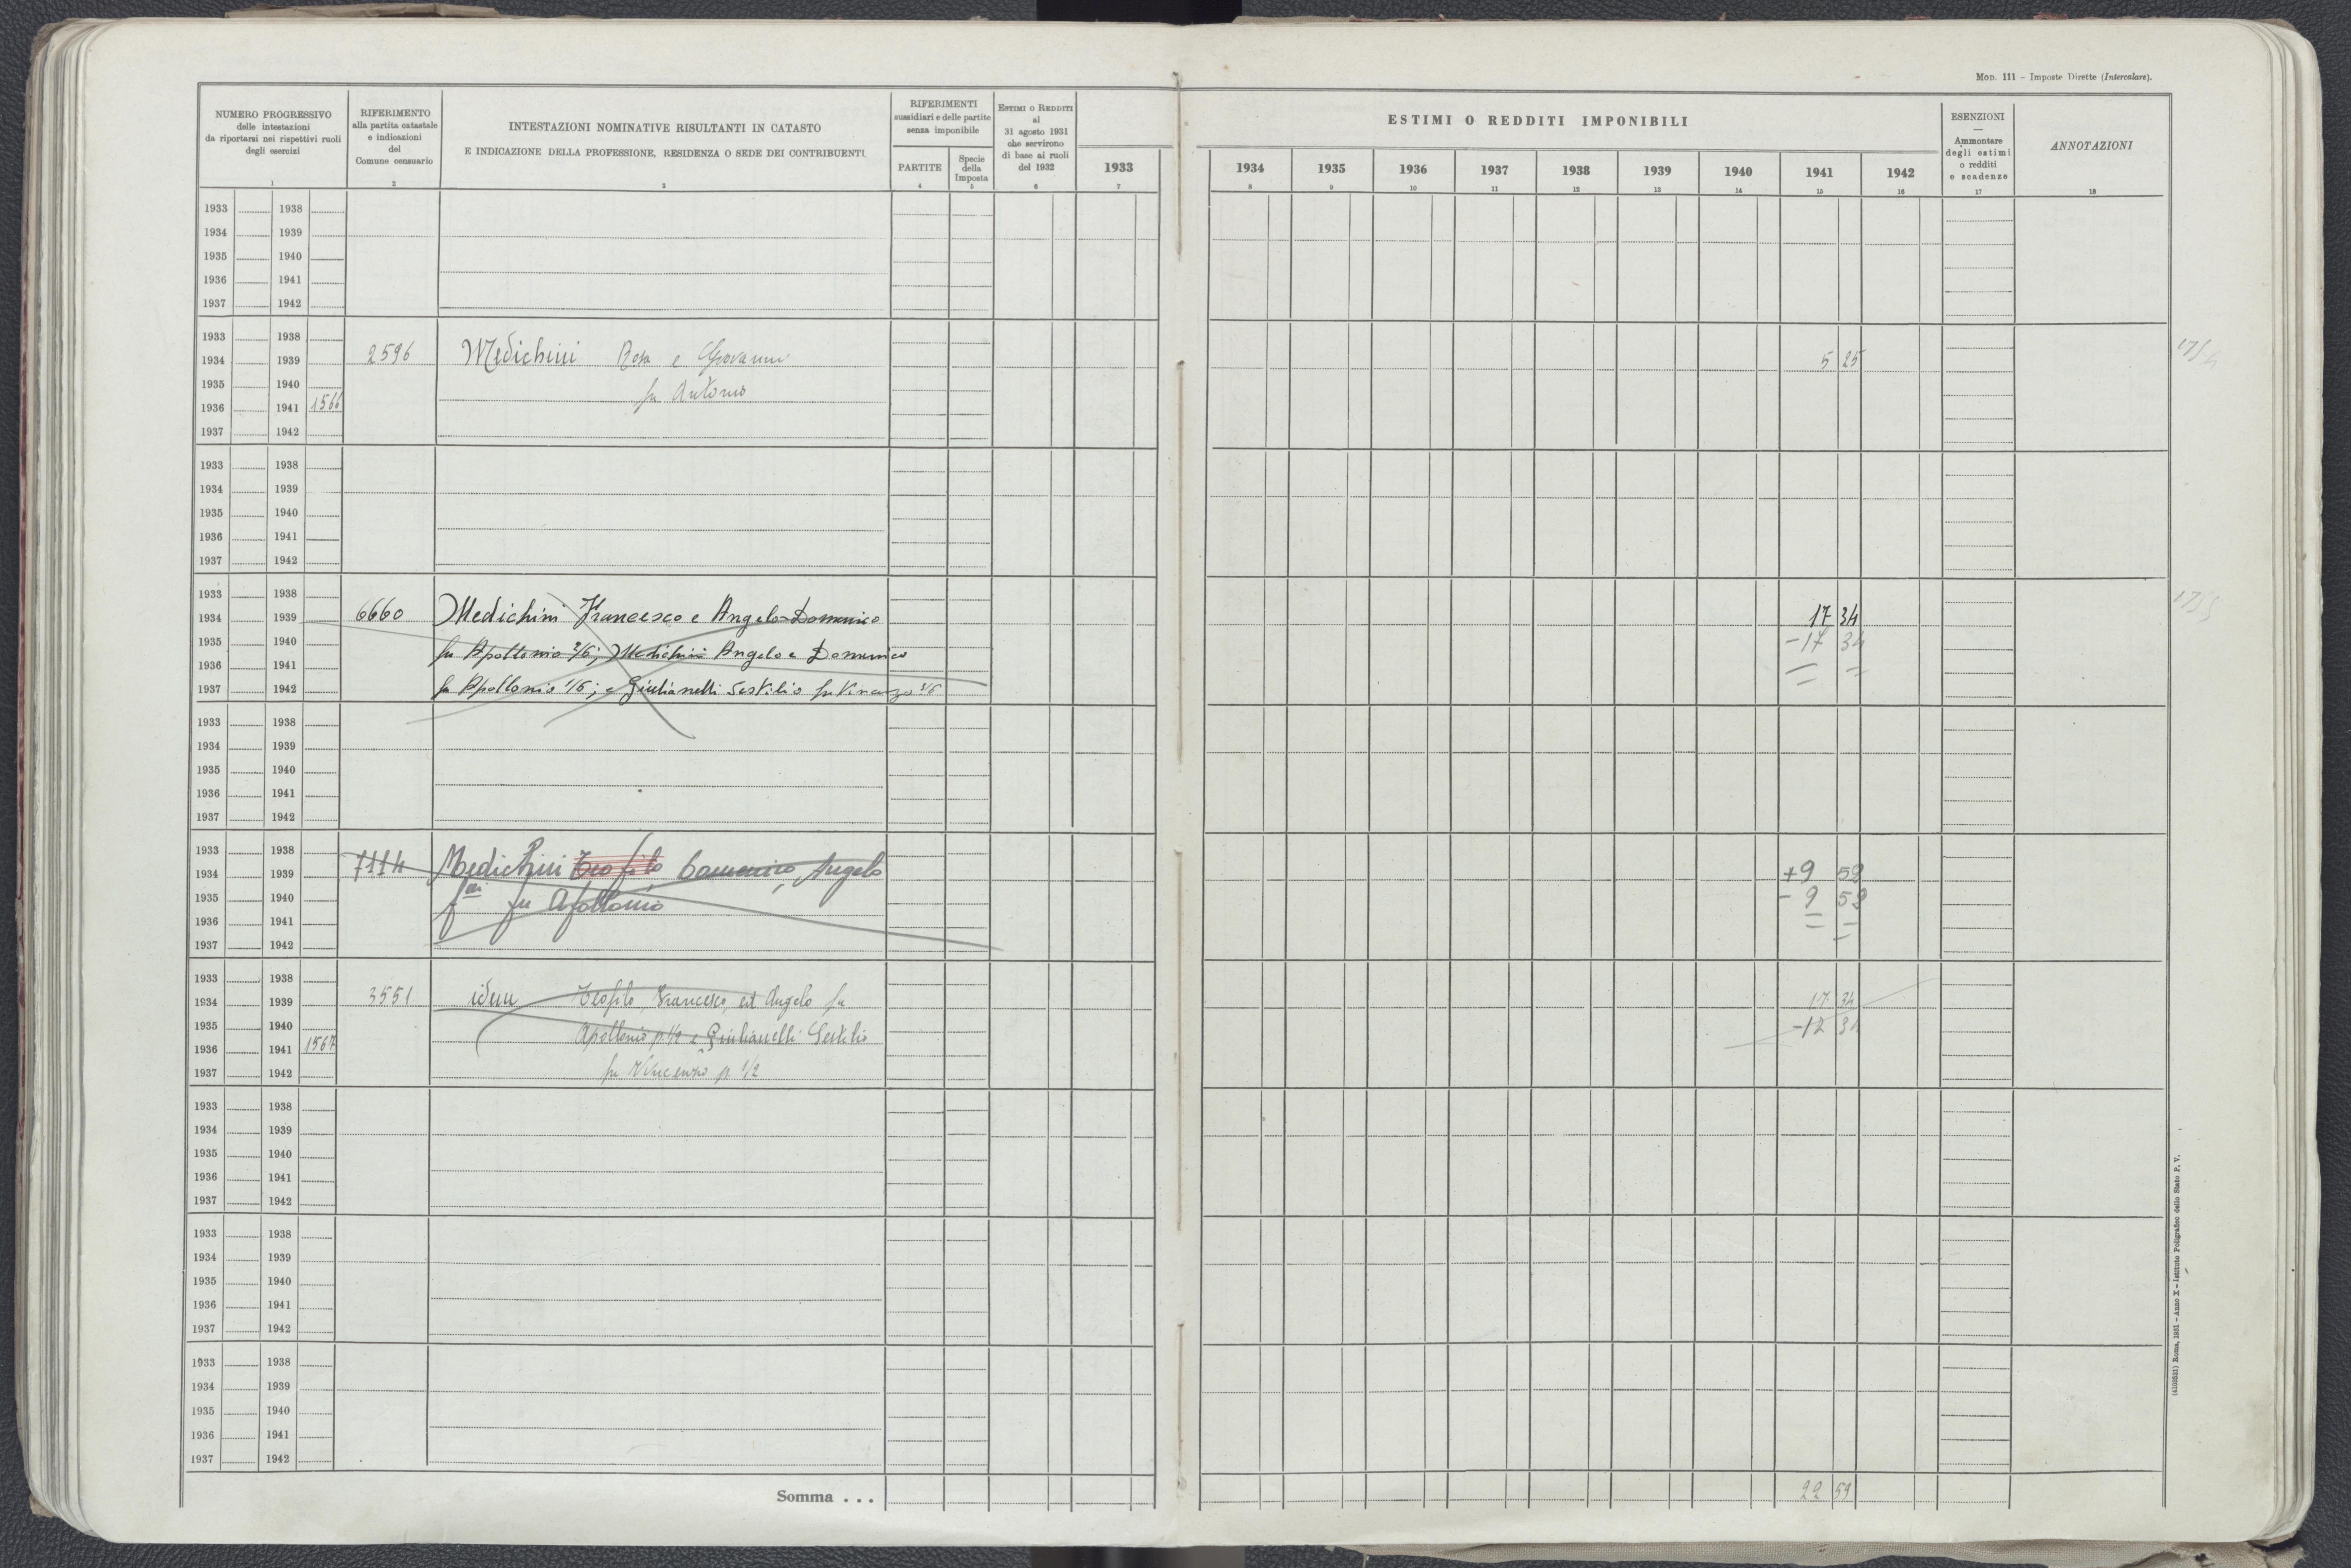 Mod. 111 – Imposte Dirette (Intercalare).
NUMERO PROGRESSIVO
delle intestazioni
da riportarsi nei rispettivi ruoli
degli esercizi
1
RIFERIMENTO
alla partita catastale
e indicazioni
del
Comune censuario
2
INTESTAZIONI NOMINATIVE RISULTANTI IN CATASTO
E INDICAZIONE DELLA PROFESSIONE, RESIDENZA O SEDE DEI CONTRIBUENTI
3
RIFERIMENTI
sussidiari e delle partite
senza imponibile
PARTITE
4
Specie
della
Imposta
5
ESTIMI O REDDITI
al
31 agosto 1931
che servirono
di base ai ruoli
del 1932
6
1933
7
ESTIMI O REDDITI IMPONIBILI
1934 1935 1936 1937 1938 1939 1940 1941 1942
8 9 10 11 12 13 14 15 16
ESENZIONI
—
Ammontare
degli estimi
o redditi
e scadenze
17
ANNOTAZIONI
18
1933 1938
1934 1939
1935 1940
1936 1941
1937 1942
1933 1938
1934 1939 2596 Medichini Rosa e Giovanni 5 25
1935 1940 fu Antonio
1936 1941 1566
1937 1942
1754
1933 1938
1934 1939
1935 1940
1936 1941
1937 1942
1933 1938
1934 1939 6660 Medichini Francesco e Angelo-Domenico 17 34
1935 1940 fu Apollonio 2/6; Medichini Angelo e Domenico -17 34
1936 1941
1937 1942 fu Apollonio 1/6; e Giulianelli Sestilio fu Vincenzo 3/6
1755
1933 1938
1934 1939
1935 1940
1936 1941
1937 1942
1933 1938
1934 1939 7114 Medichini Teofilo, Domenico, Angelo +9 52
1935 1940 fu Apollonio - 9 52
1936 1941
1937 1942
1933 1938
1934 1939 3551 idem Teofilo, Francesco, ed Angelo fu 17 34
1935 1940 Apollonio p. 1/2 e Giulianelli Sestilio -17 34
1936 1941 1567
1937 1942 fu Vincenzo p. 1/2
1933 1938
1934 1939
1935 1940
1936 1941
1937 1942
1933 1938
1934 1939
1935 1940
1936 1941
1937 1942
1933 1938
1934 1939
1935 1940
1936 1941
1937 1942
Somma . . . 22 59
(4103531) Roma, 1931 – Anno X – Istituto Poligrafico dello Stato P. V.